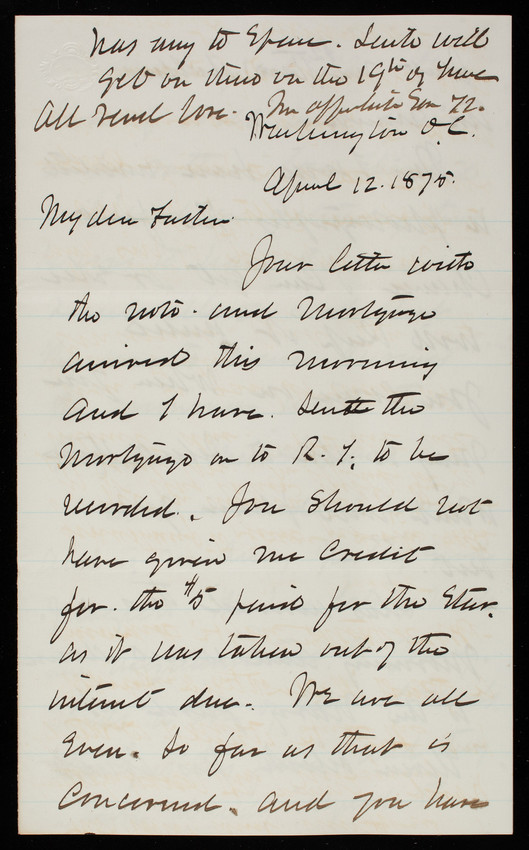 has any to spare. Lents will
get on there on the 19th of June
All send love.
Washington D.C.
April 12. 1875.
My dear Father
Your letter with
the note and Mortgage
arrived this morning
and I have. Sent the
Mortgage on to R. I. to be
recorded. You should not
have given me Credit
for. the $5 paid for the Star.
as it was taken out of the
interest due. We are all
Even. So far as that is
Concerned. and you have